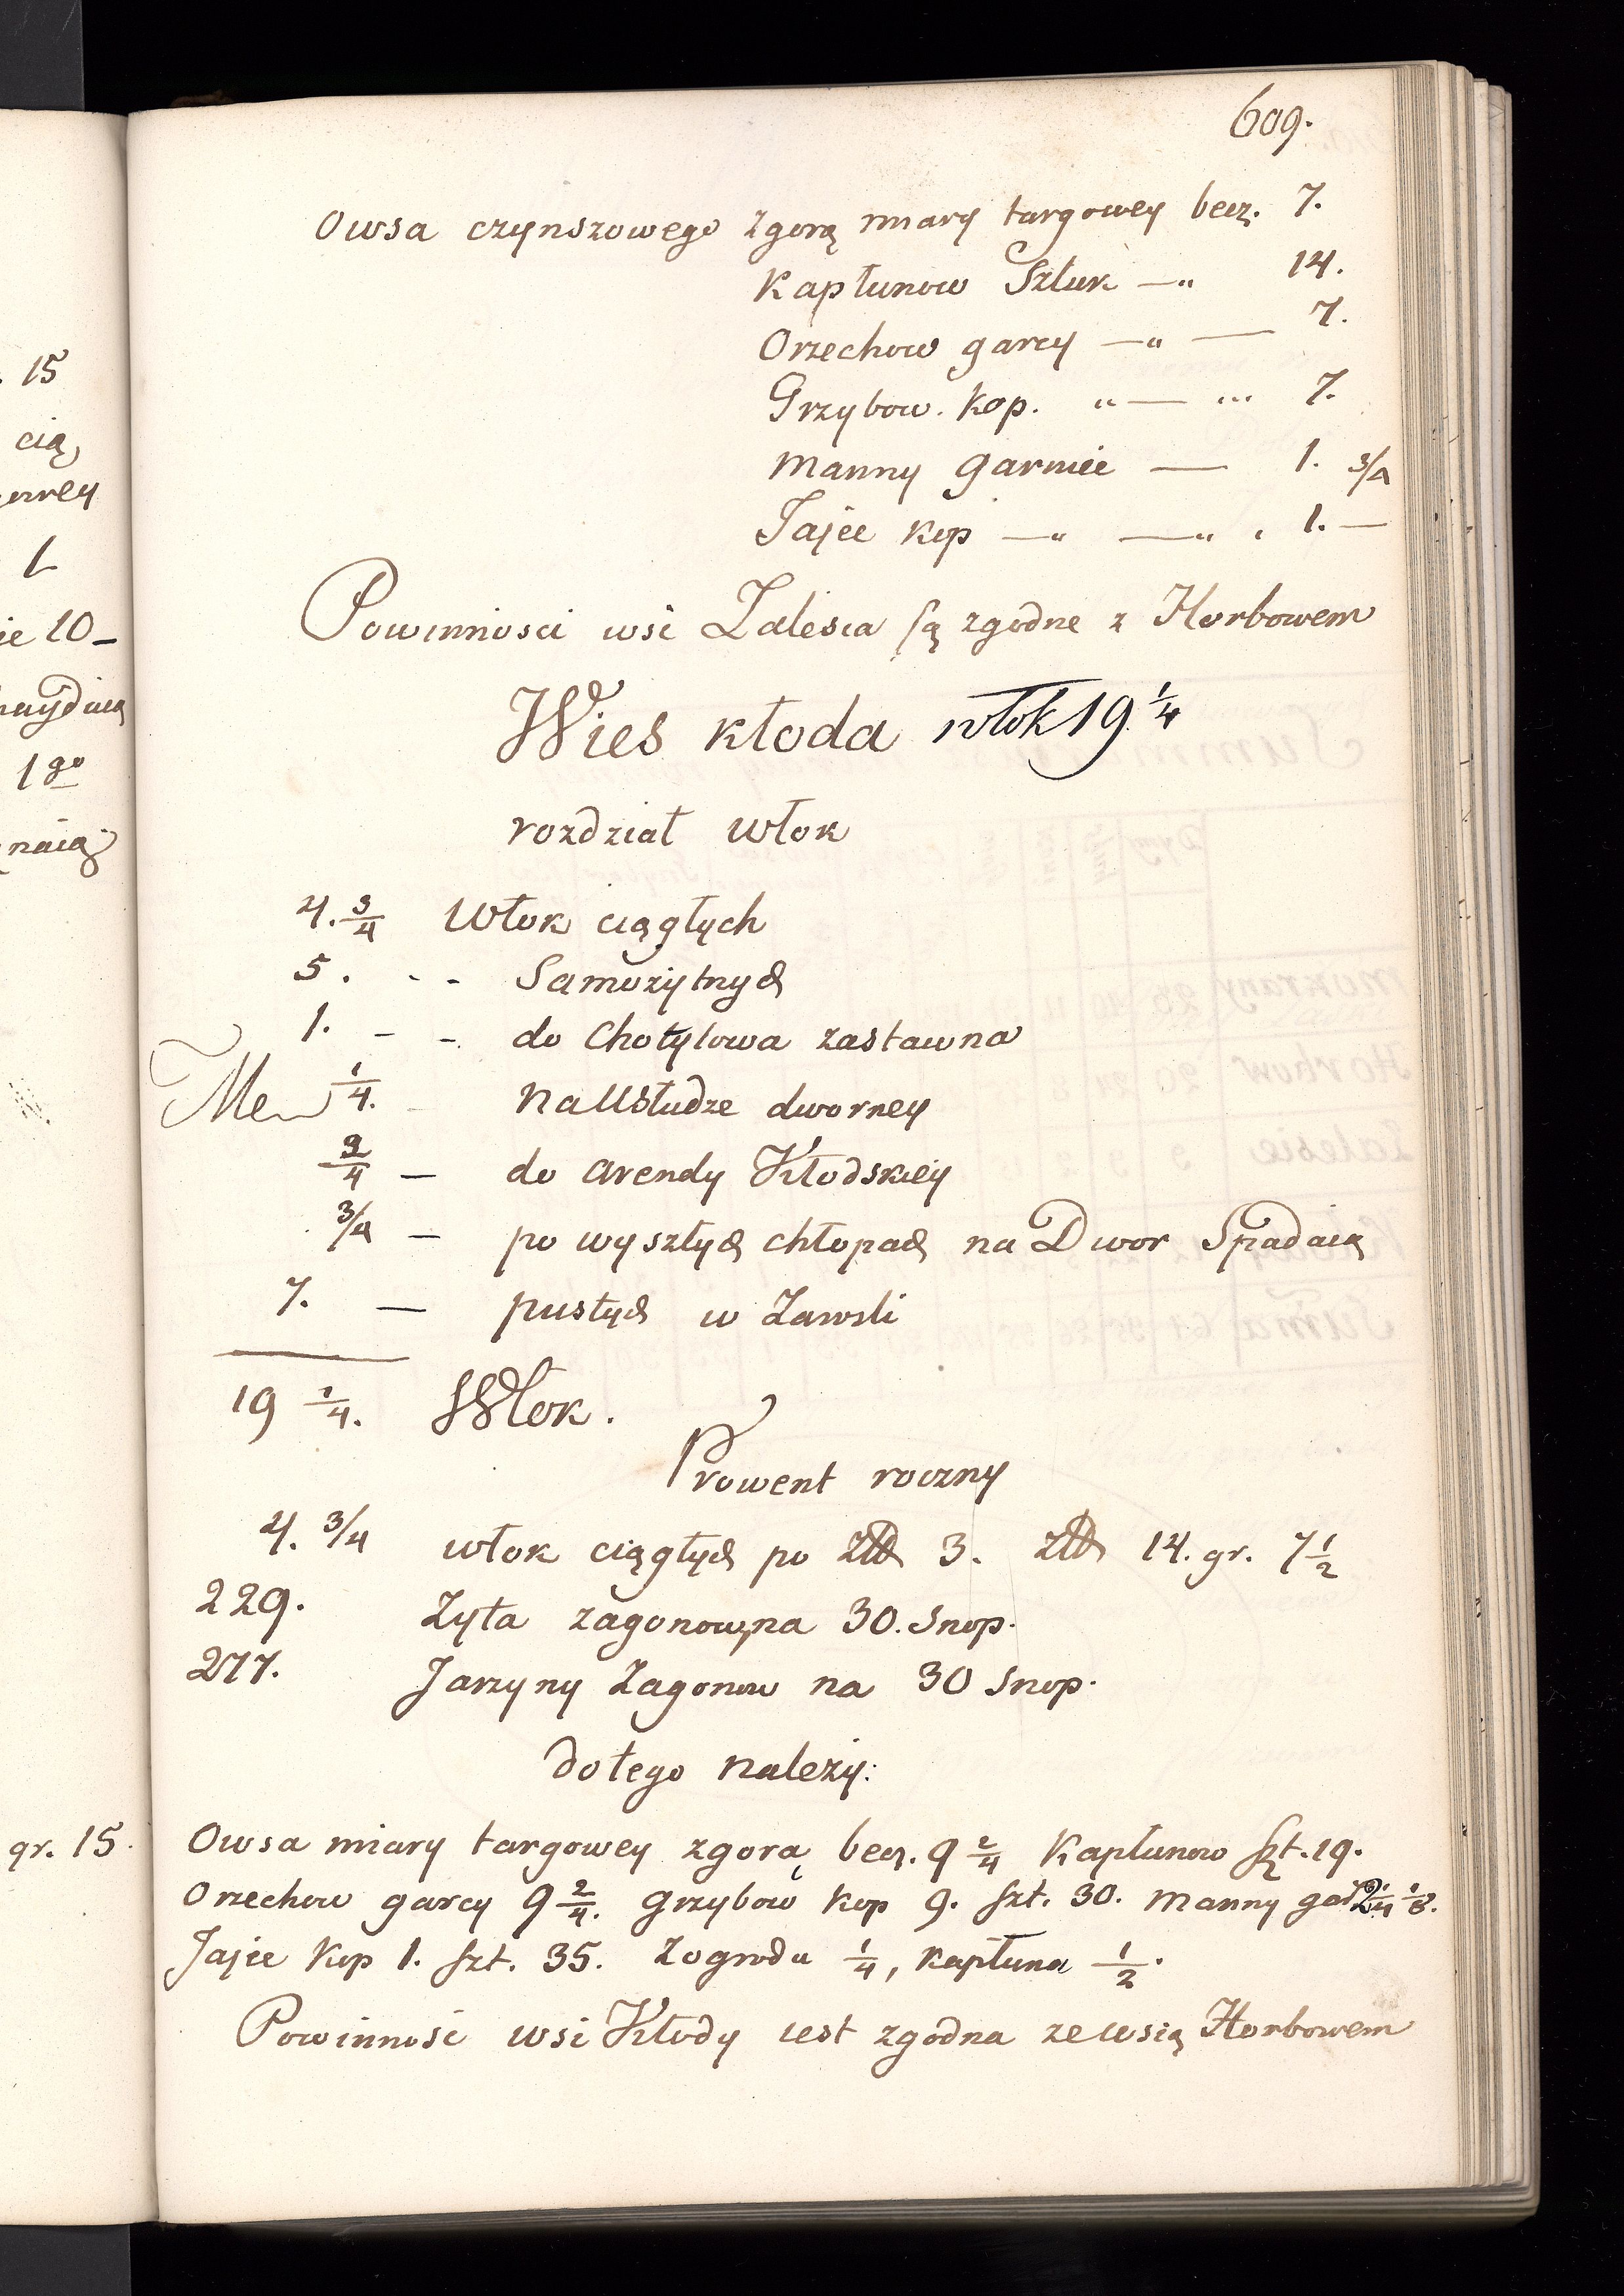 609.
Owsa czynszowego zgorą miary targowey becz. 7.
Kapłunow Sztuk —„ 14.
Orzechow garcy —„ — 7.
Grzybow. kop. „— „. 7.
Manny Garniec — 1. 3/4
Jajec kop —„ —„ , 1. —
Powinnosci wsi Zalesia są zgodne z Horbowem
Wies Kłoda włok 19 1/4
rozdział włok
4. 3/4 Włok ciągłych
5. - - Samożytnych
1. - - do Chotyłowa zastawna
1/4. - na Usłudze dworney
2/4 — do Arendy Kłodskiey
3/4 — po wyszłych chłopach na Dwor Spadaią
7. — pustych w Zawsli
19 1/4. Włok.
Prowent roczny
4. 3/4 włok ciągłych po złł 3. złł 14. gr. 7 1/2
229. Zyta zagonow na 30. Snop.
277. Jarzyny Zagonow na 30 Snop.
do tego nalezy:
Owsa miary targowey zgorą becz. 9 2/4 Kapłunow szt. 19.
Orzechow garcy 9 2/4. Grzybow kop 9. szt. 30. Manny gar 2 1/4 1/8.
Jajec kop 1. szt. 35. Zogroda 1/4, kapłuna 1/2.
Powinnosc wsi Kłody iest zgodna ze wsią Horbowem
15
cią
1
ie 10 –
1 go
gr. 15.